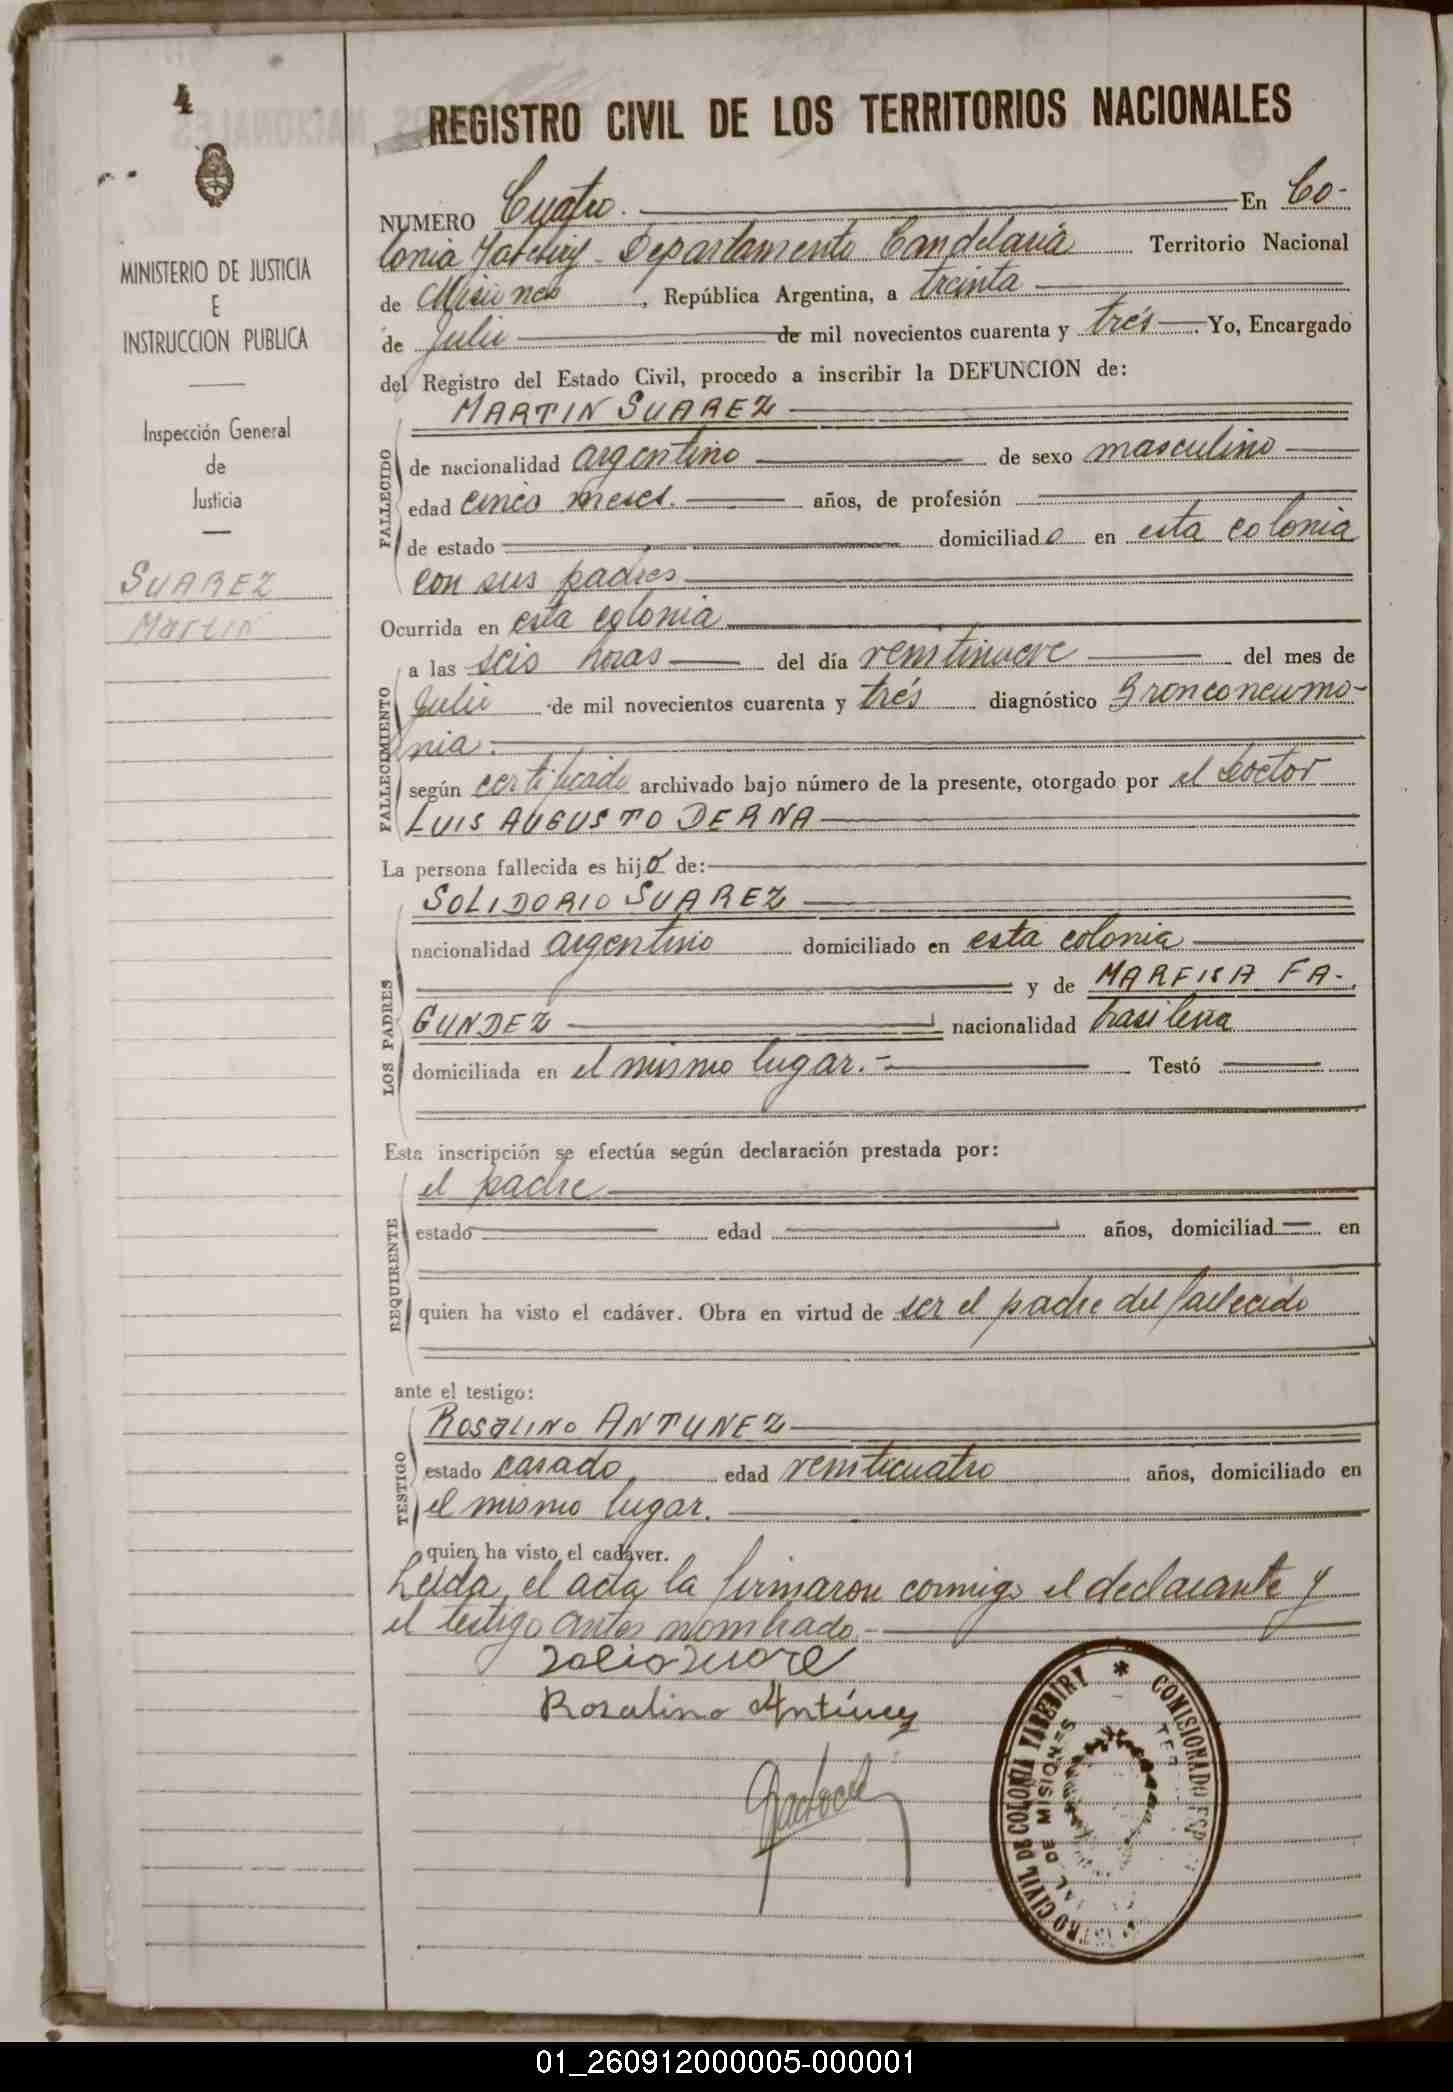 4
REGISTRO CIVIL DE LOS TERRITORIOS NACIONALES
MINISTERIO DE JUSTICIA
E
INSTRUCCION PUBLICA
Inspección General
de
Justicia
SUAREZ
Martin
NUMERO Cuatro. En Co-
lonia Yabebiry - Departamento Candelaria Territorio Nacional
de Misiones, República Argentina, a treinta
de Julio de mil novecientos cuarenta y trés. Yo, Encargado
del Registro del Estado Civil, procedo a inscribir la DEFUNCION de:
MARTIN SUAREZ
FALLECIDO
de nacionalidad argentino de sexo masculino
edad cinco meses. años, de profesión
de estado domiciliado en esta colonia
con sus padres
Ocurrida en esta colonia
FALLECIMIENTO
a las seis horas del día veintinueve del mes de
Julio de mil novecientos cuarenta y trés diagnóstico Bronconeumo-
nia.
según certificado archivado bajo número de la presente, otorgado por el Doctor
LUIS AUGUSTO DERNA
La persona fallecida es hijo de:
LOS PADRES
SOLIDORIO SUAREZ
nacionalidad argentino domiciliado en esta colonia
y de MARFISA FA-
GUNDEZ nacionalidad brasilena
domiciliada en el mismo lugar.- Testó
Esta inscripción se efectúa según declaración prestada por:
REQUIRENTE
el padre
estado edad años, domiciliad en
quien ha visto el cadáver. Obra en virtud de ser el padre del fallecido
ante el testigo:
TESTIGO
ROSALINO ANTUNEZ
estado casado, edad veinticuatro años, domiciliado en
el mismo lugar.
quien ha visto el cadáver.
Leida el acta la firmaron conmigo el declarante y
el testigo antes nombrado.-
Rosalino Antúnez
REGISTRO CIVIL DE COLONIA YABEBIRY * COMISIONADO ESP
DE MISIONES
01_260912000005-000001